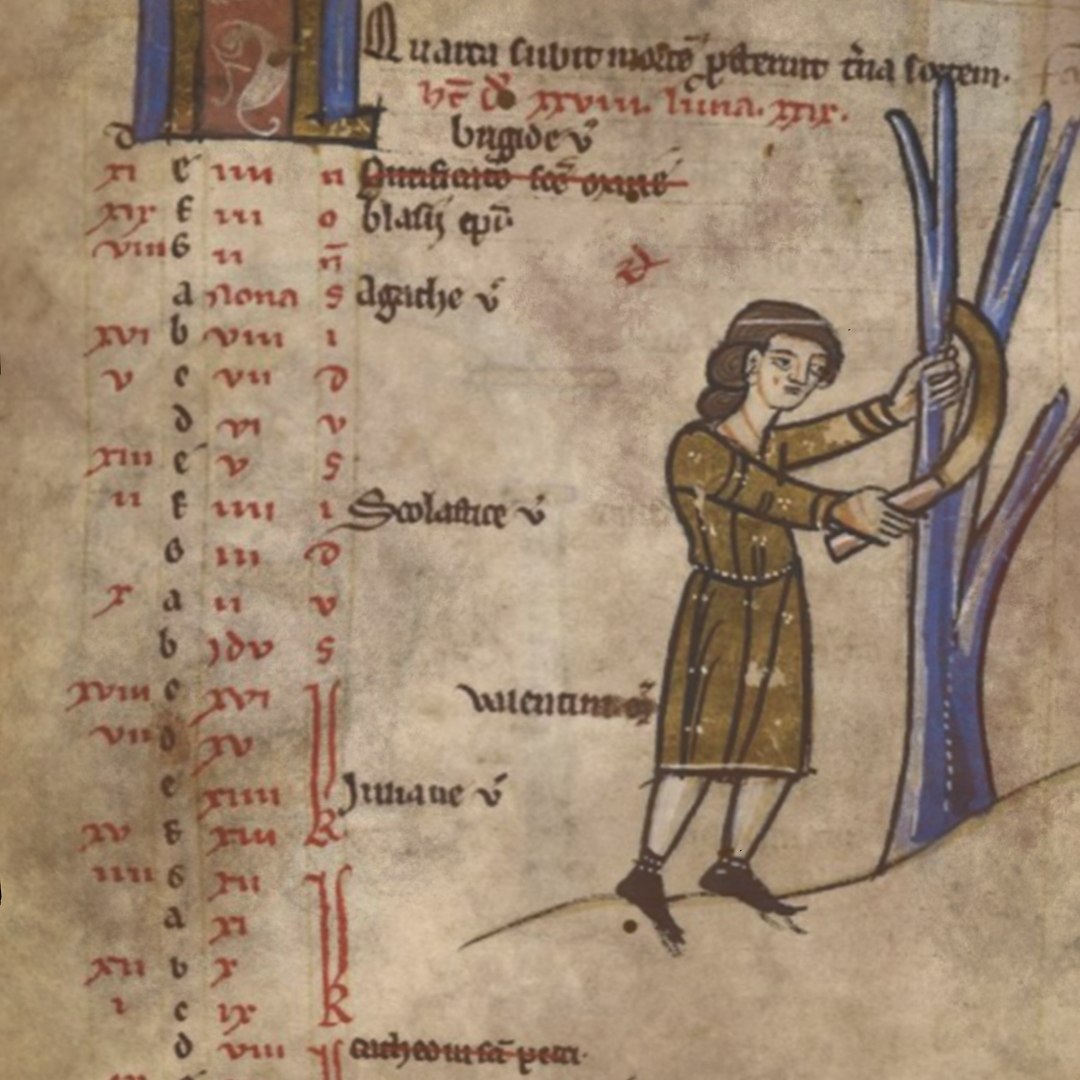 Quarta subit mortē pst̄ernit t̄cia fortem.
h̄t d̄ xxviii. luna. xxix.
d brigide v̄
xi e iiii n Purificatio sc̄e marie
xix f iii o blasij ep̄i.
viii G ii n̄
a Nona s Agathe v̄
xvi b viii i
v c vii d
d vi v
xiii e v s
ii f iiii i Scolastice v̄
G iii d
x a ii v
b ydv s
xviii c xvi valentini
vii d xv
e xiiii Juliane v̄
xv f xiii k
iiii G xii
a xi
xii b x
i c ix k
d viii cathedra sc̄i petri.